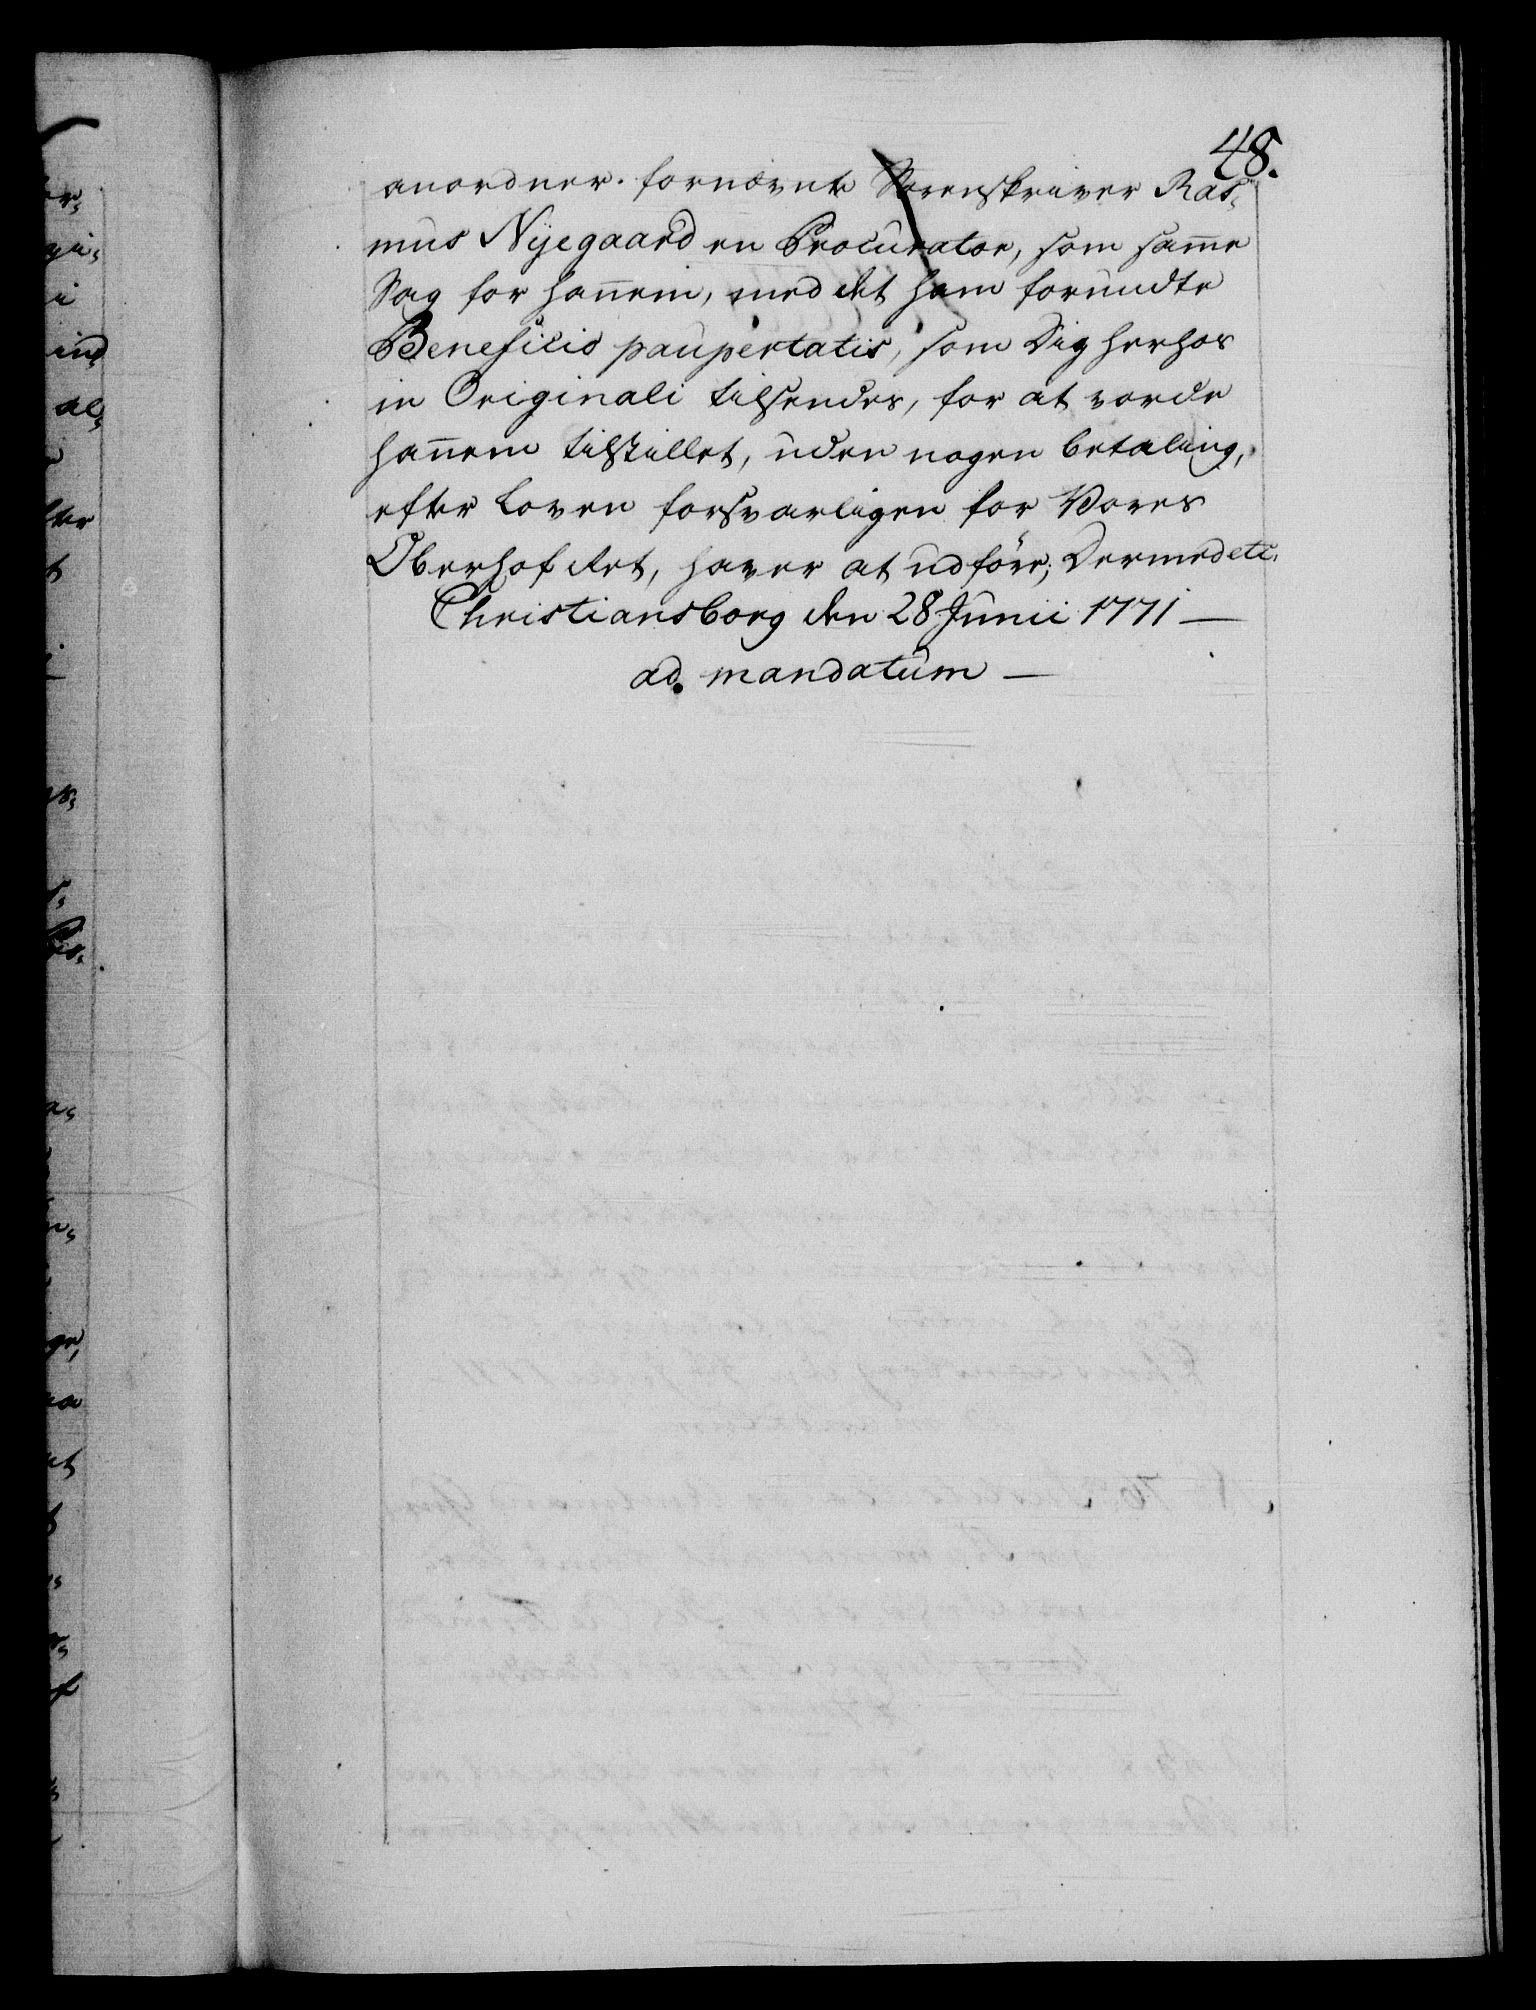 48.
anordner fornævnte Sorenskriver Ras-
mus Nyegaard en Procurator, som samme
Sag for hannem, med det ham forundte
Beneficio paupertatis, som Dig herhos
in Originali tilsendes, for at vorde
hannem tilstillet, uden nogen betaling,
efter Loven forsvarligen for Vores
Oberhof Ret, haver at udføre; Dermed etc.
Christiansborg den 28 Junii 1771 —
ad mandatum —